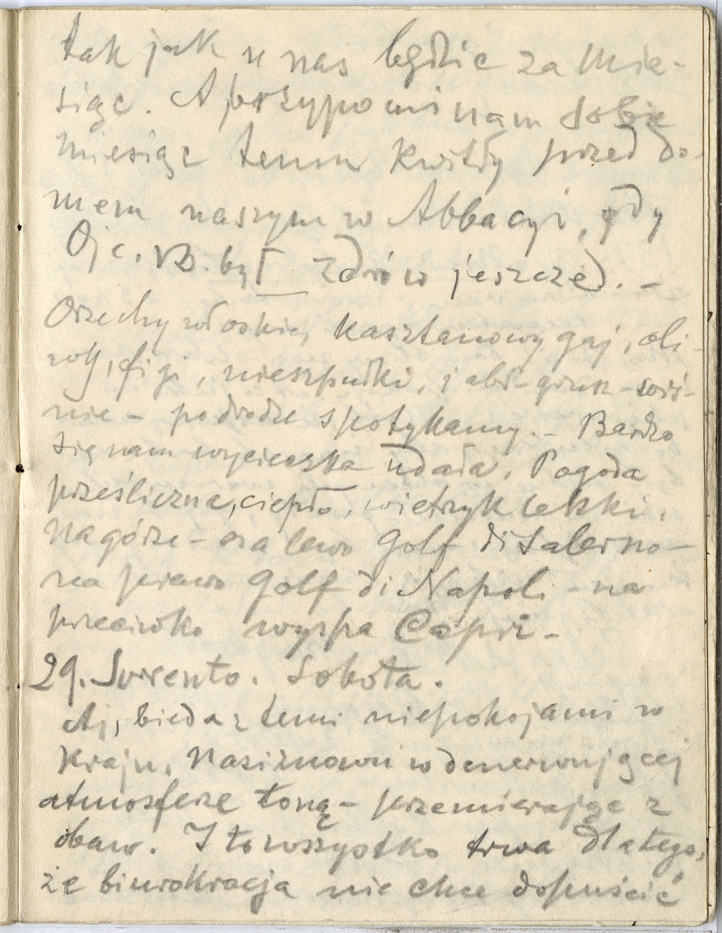 tak jak u nas będzie za mie-
siąc. A przypominam sobie
miesiąc temu kwitły przed do-
mem naszym w Abbacyi, gdy
Ojc. był zdrów jeszcze). –
Orzechy włoskie, kasztanowy gaj, oli-
wy, figi, nieszpułki, jabł-grusz-wiś-
nie – po drodze spotykamy. – Bardzo
się nam wycieczka udała. Pogoda
prześliczna, ciepło, wietrzyk lekki.
Na górze – na lewo Golf di Salerno –
na prawo Golf di Napoli – na
przeciwko wyspa Capri –
29. Sorrento. Sobota.
Aj, bieda z temi niepokojami w
kraju. Nasi znowu w denerwującej
atmosferze toną – przemierając z
obaw. I to wszystko trwa dlatego,
że biurokracja nie chce dopuścić